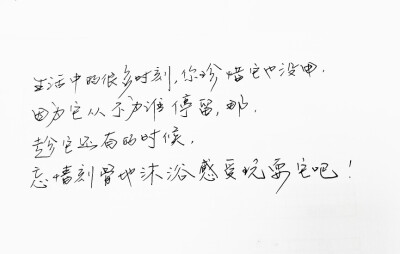 生活中的很多时刻,你珍惜它也没用.
因为它从不为谁停留,那.
趁它还有的时候,
忘情刻骨地沐浴感受玩耍它吧!